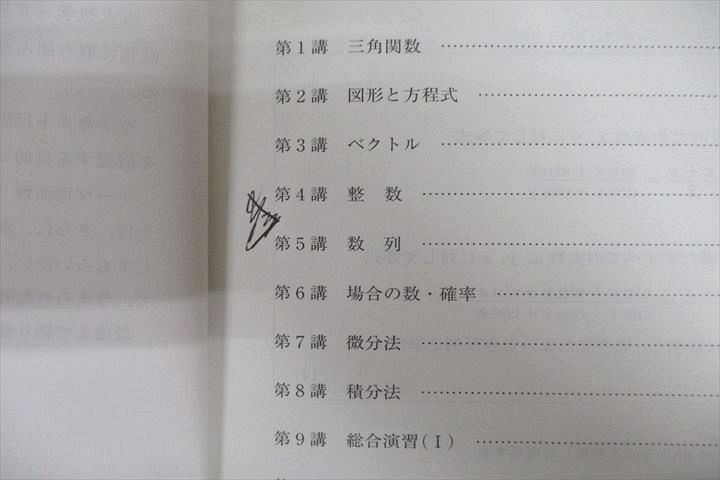 第1講 三角関数 ………………
第2講 図形と方程式 ………………
第3講 ベクトル ………………
第4講 整　数 ………………
第5講 数　列 ………………
第6講 場合の数・確率 ………………
第7講 微分法 ………………
第8講 積分法 ………………
第9講 総合演習(Ⅰ) ………………